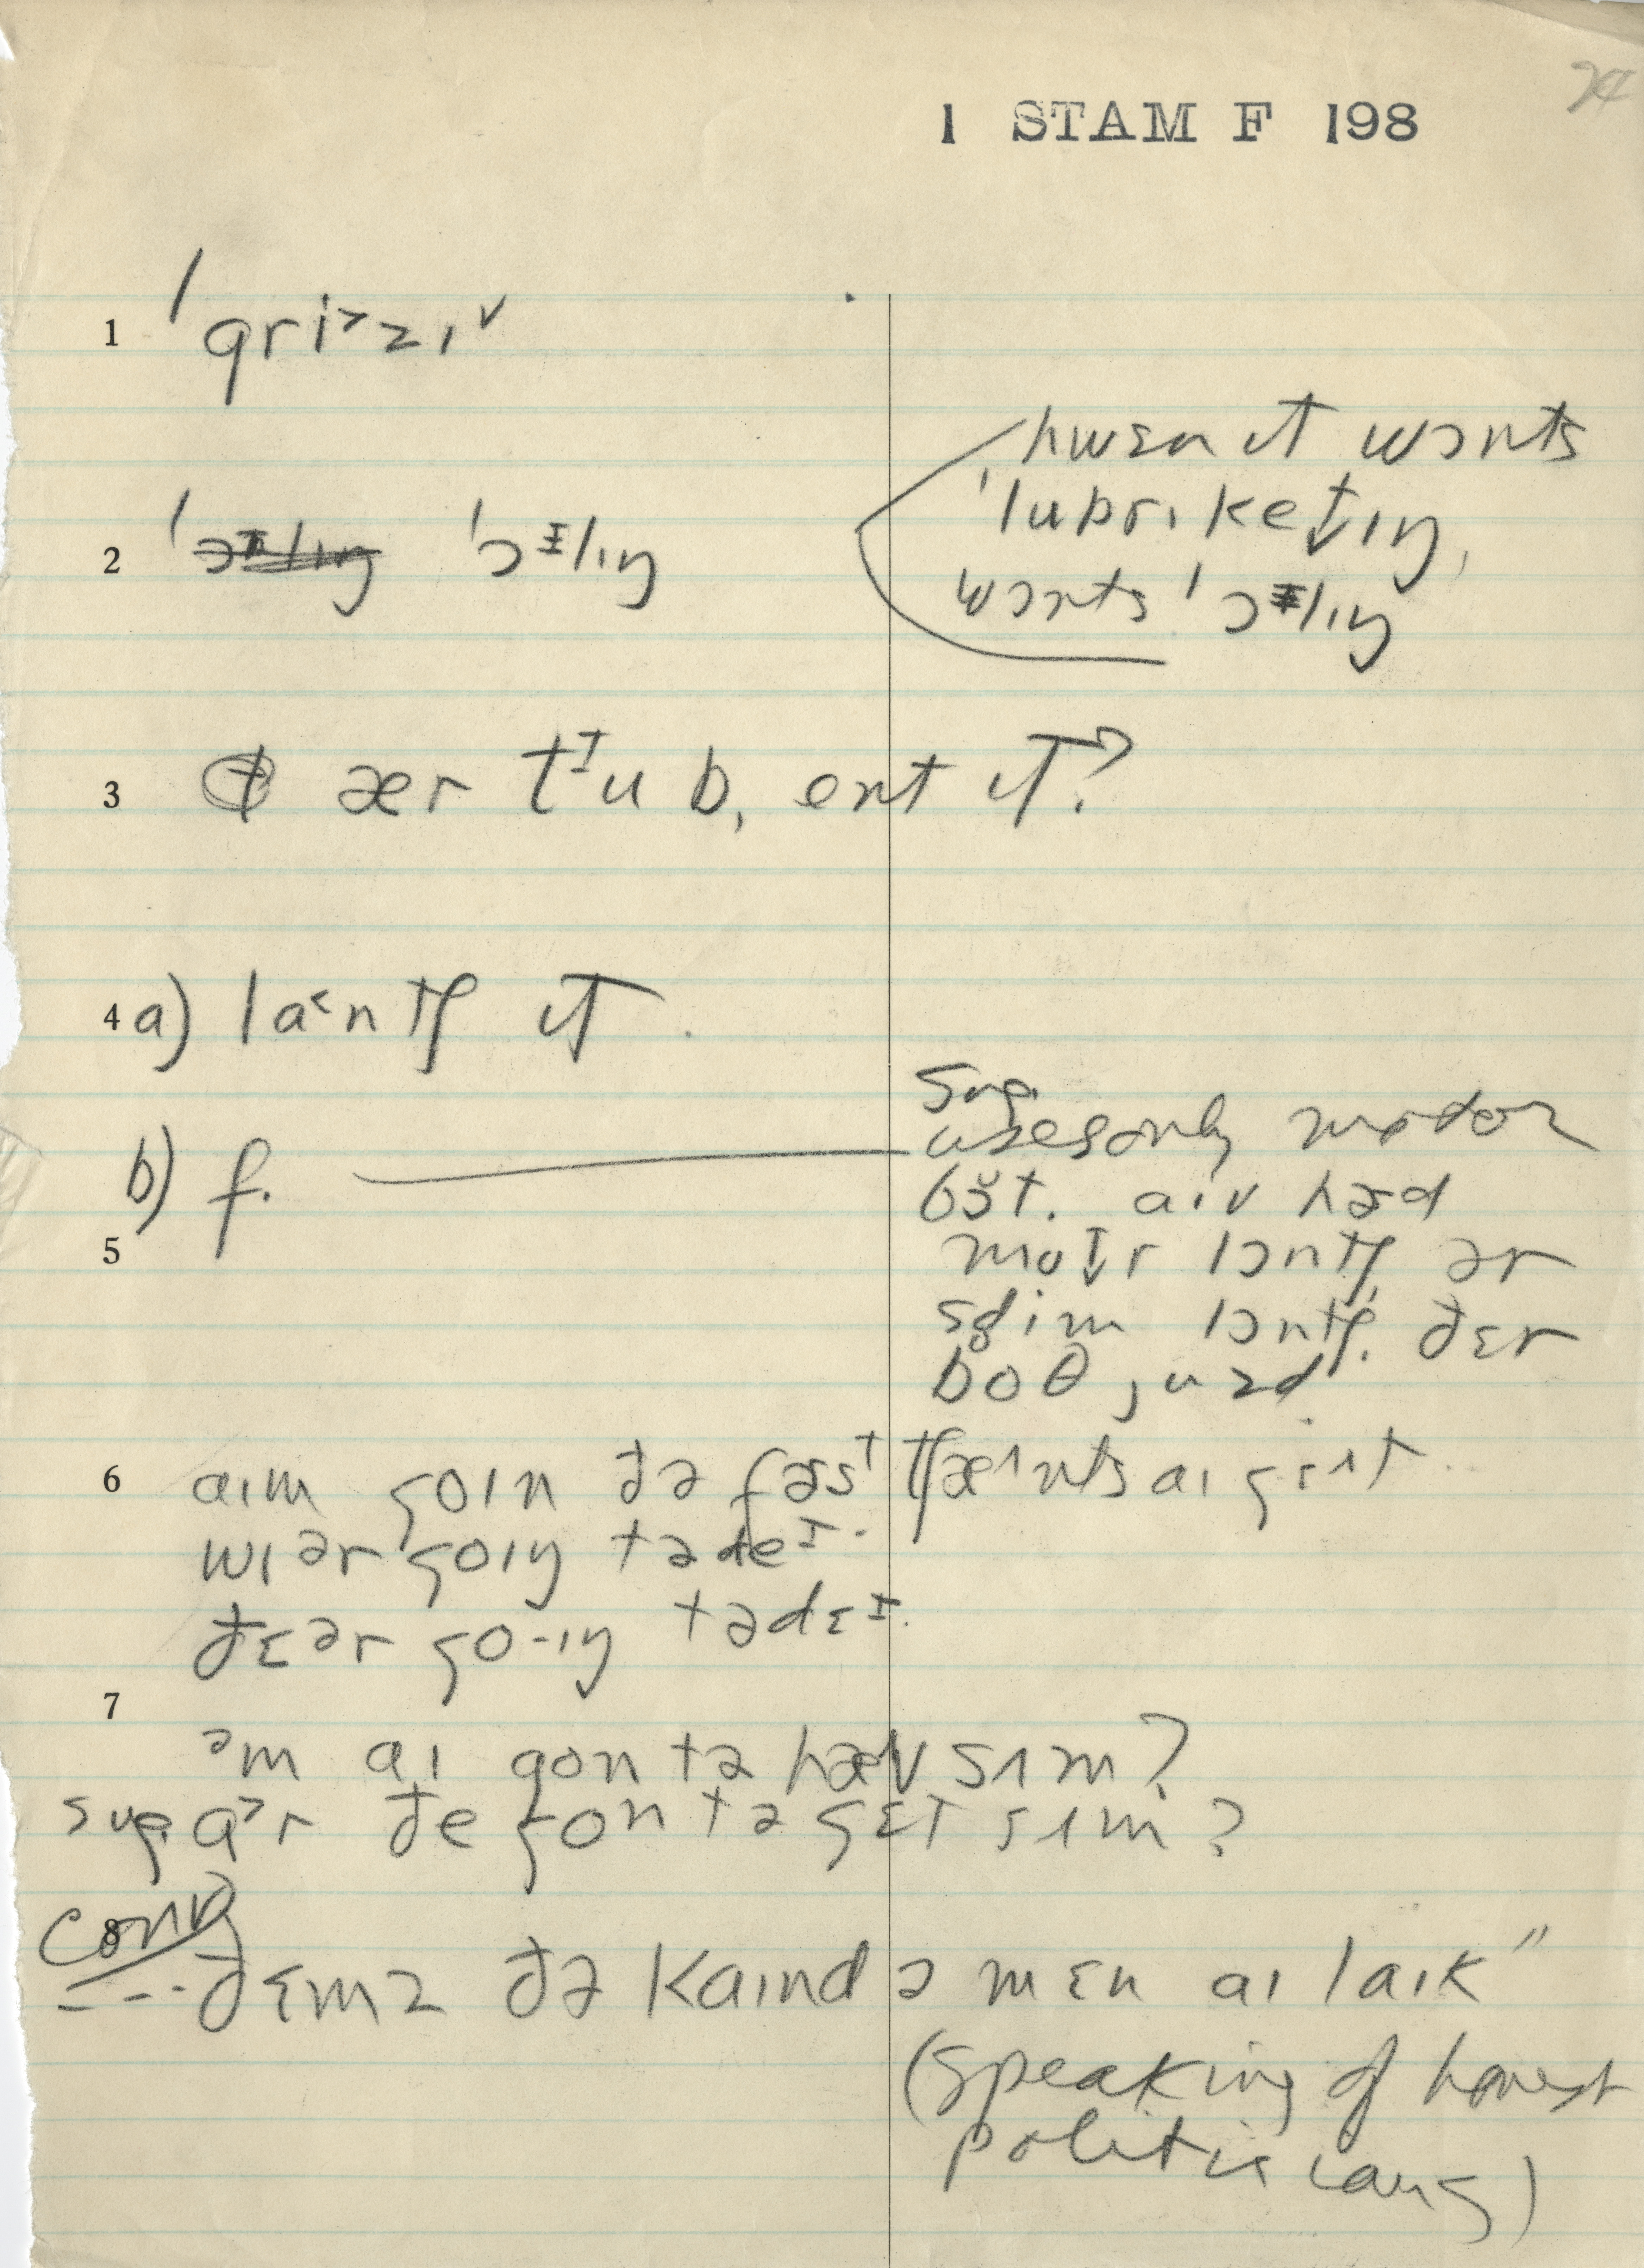 24
1 STAM F 198
1 ˈgri˃zɪ˅
2 ˈɔɪlɪŋ ˈɔɪlɪŋ
hwɛn ɪt wɔnts
ˈlubrɪketɪŋ,
wɔnts ˈɔɪlɪŋ
3 ær tᶦub, ent ɪt?
4 a) la˂ntʃ ɪt.
b) f.
sug.
uses only motor
bŏt. aɪv hæd
motr lɔntʃ ər
sdim lɔntʃ. ðɛr
boθ juzd
5
6 aɪm goɪn ðə fæst tʃæ^nts aɪ gɛ^t..
wɪər goɪŋ tədeᶦ.
ðɛər go-ɪŋ tədɛᶦ.
7
əm aɪ gon tə hæv sʌm?
sug. ɑ˃r ðe gon tə gɛt sʌm?
conv 8
---ðɛmz ðə kaɪnd ə mɛn aɪ laɪk"
(speaking of honest
politicians)